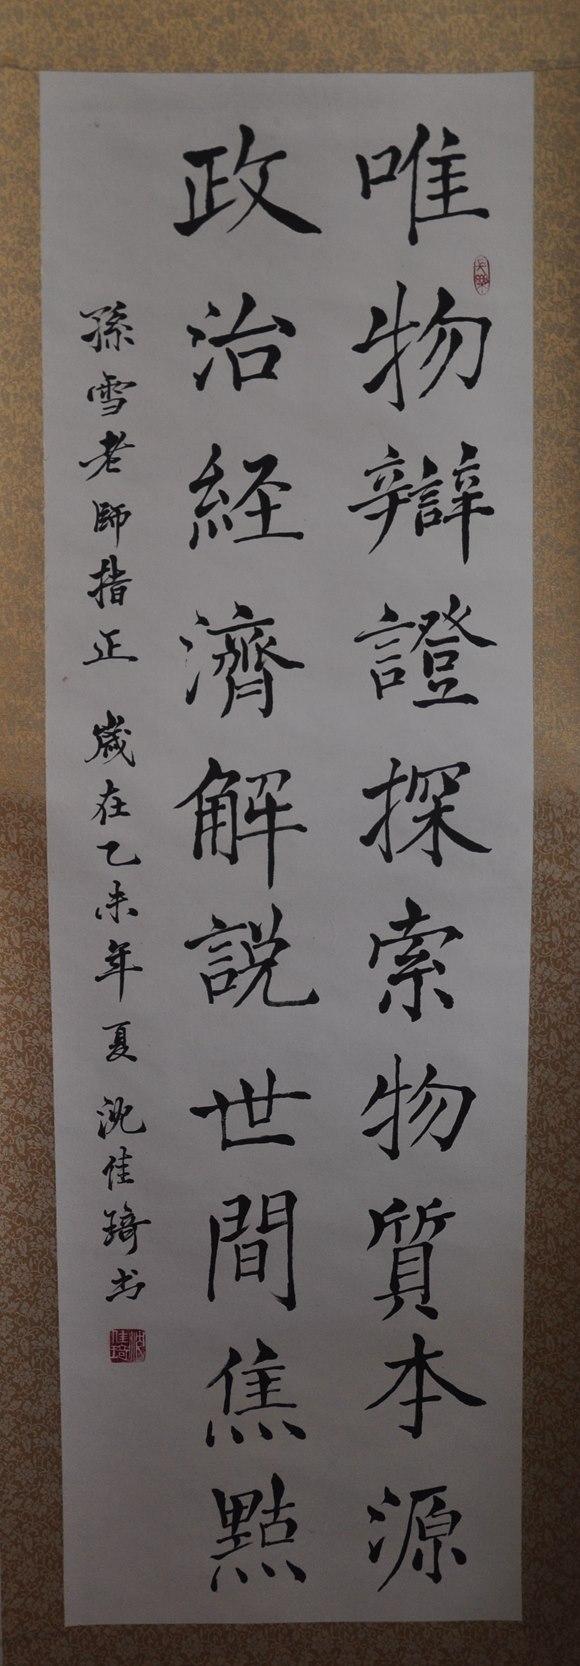 唯物辯證探索物質本源
政治経濟解説世間焦點
孫雪老師指正 歲在乙未年夏 沈佳琦书
沈佳琦